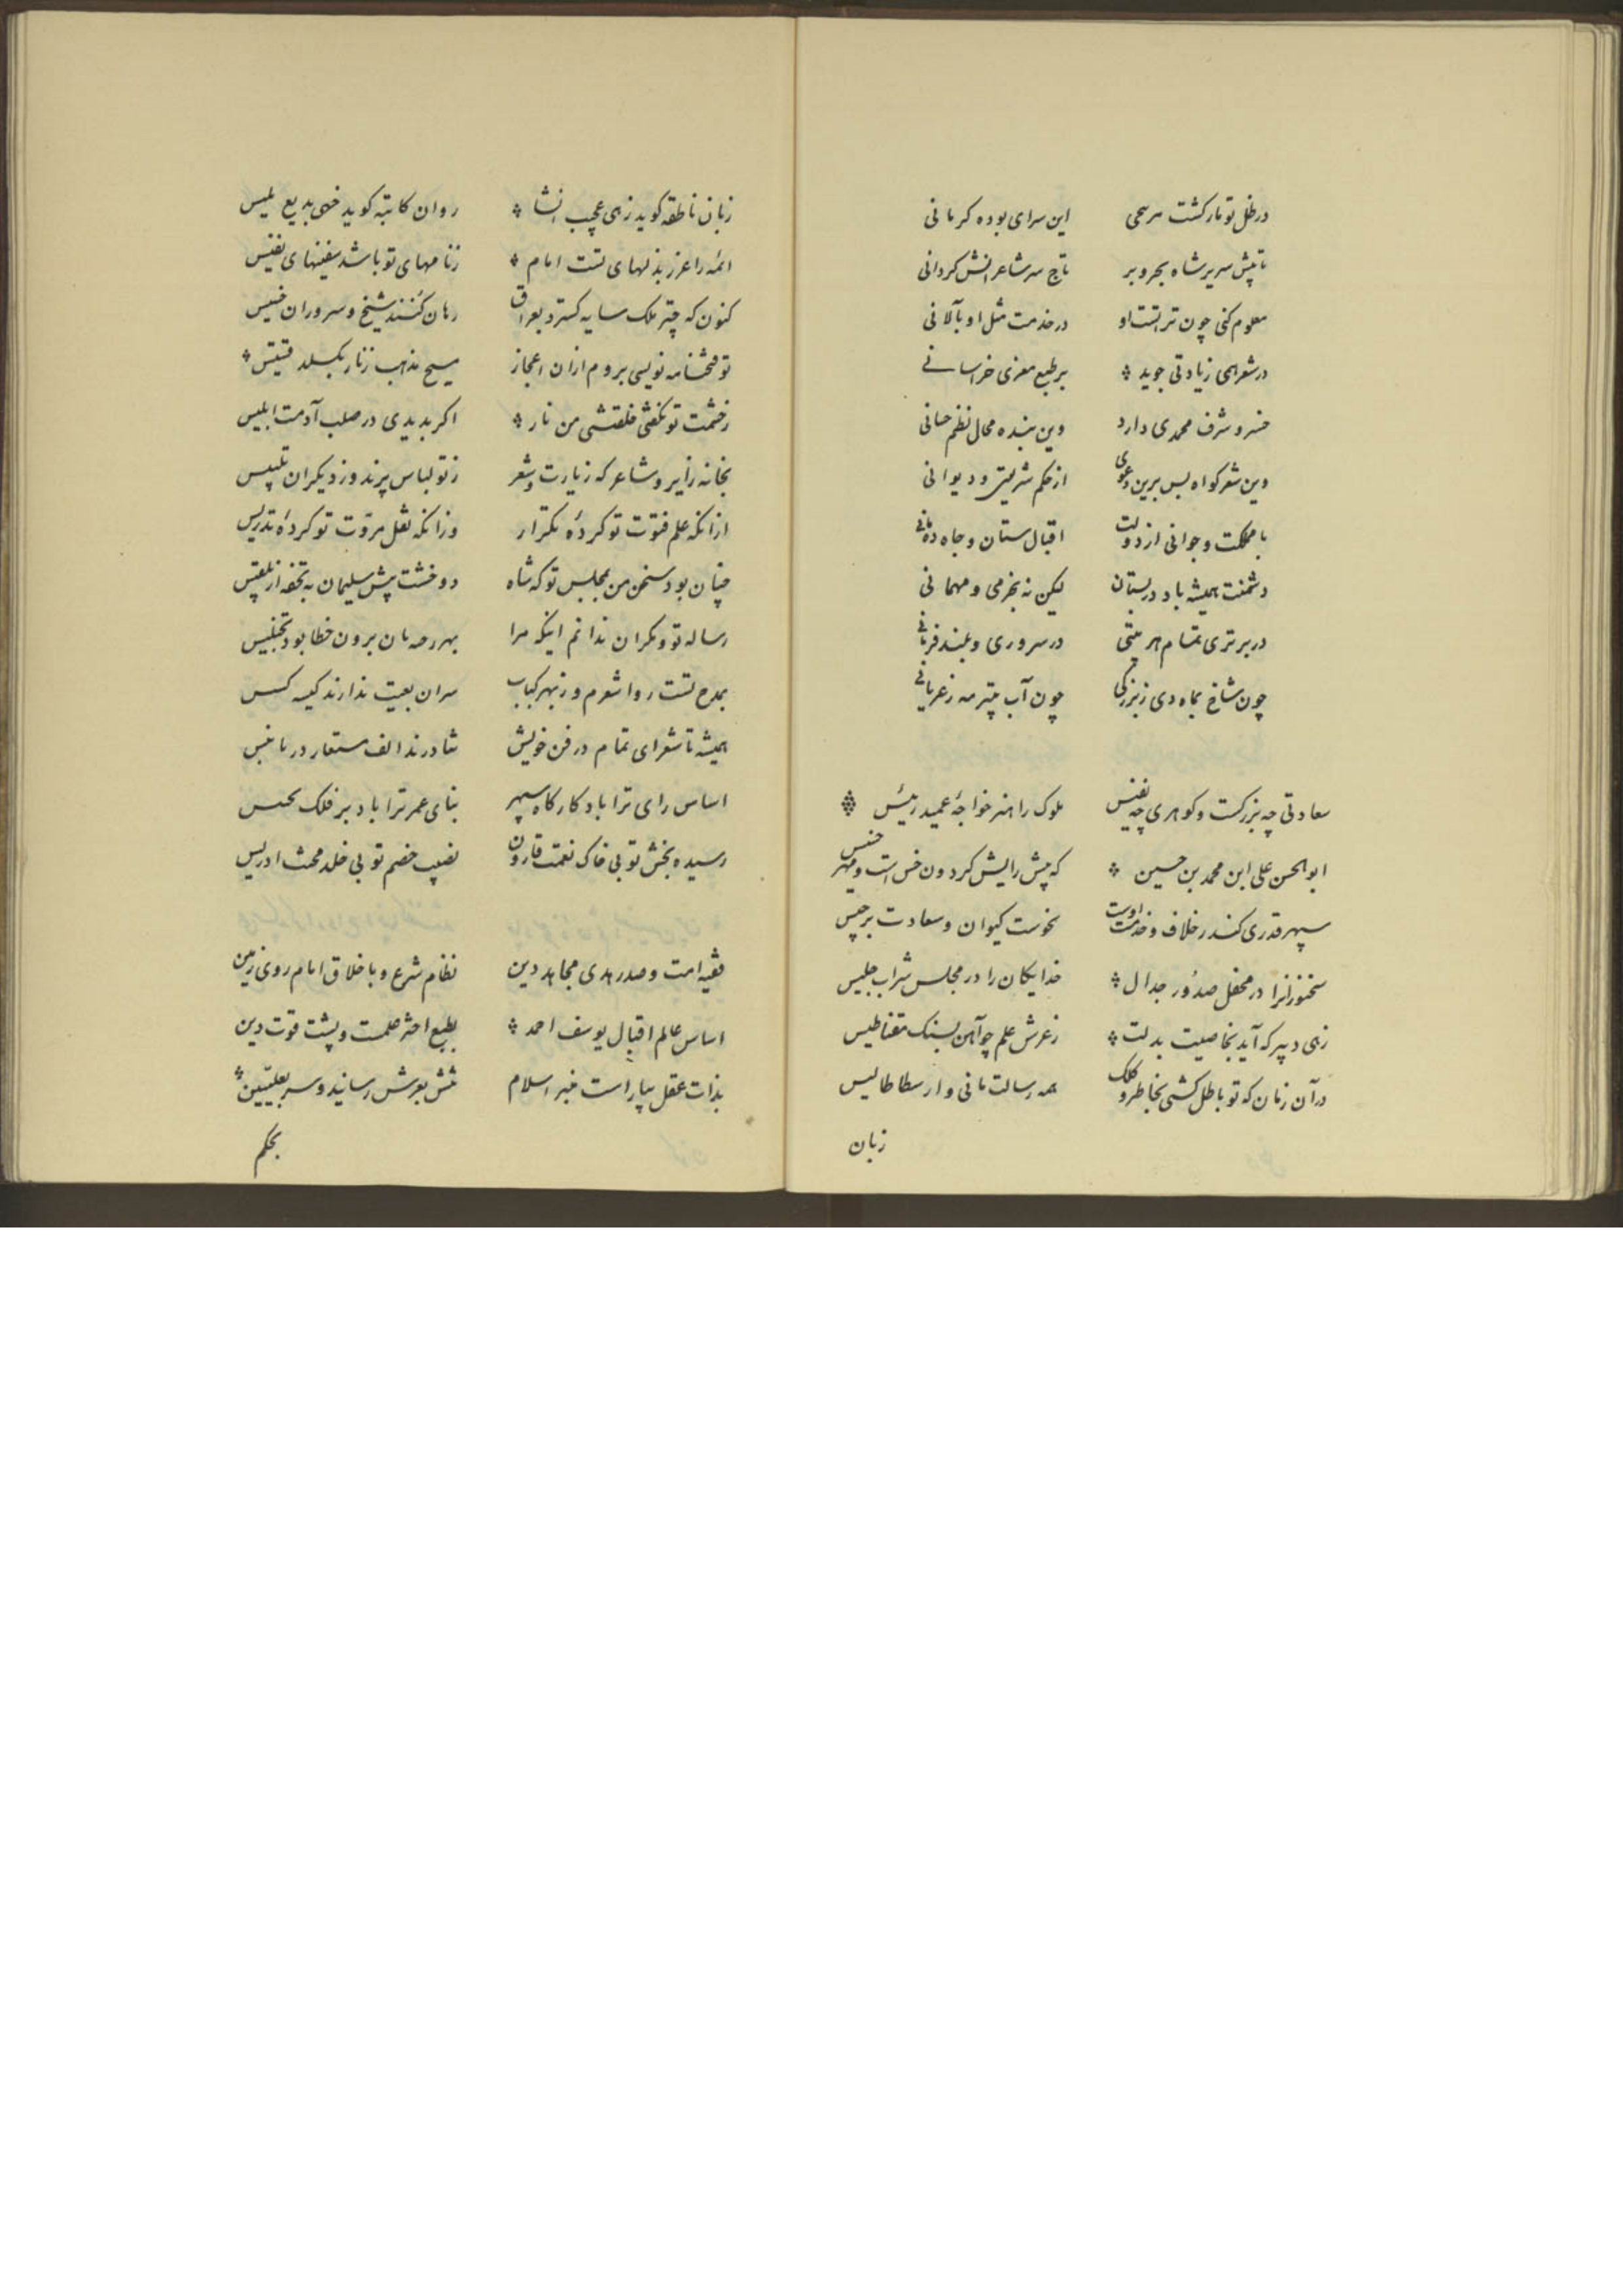 در ظل تو تار کشت هر سحی این سرای بوده کرمانی
تا پیش سریر شاه بحر و بر تاج سر شاعرانش کردانی
معلوم کنی چون تراست او در خدمت مثل او بآلانی
در شعر همی زیادتی جوید بر طبع معزی خراسانی
خسرو شرف محمدی دارد وین بنده محال نظم حسانی
وین شعر کواه بس برین دعوی از حکم شریعتی و دیوانی
با مملکت و جوانی از دولت اقبال ستان و جاه ده مانی
دشمنت همیشه باد در بستان لیکن نه بخرمی و مهمانی
در برتری تمام هر بیتی در سروری و بلند فرمانی
چون شاخ بماه دی زبزرکی چون آب بتیر مه ز عریانی
سعادتی چه بزرکست و کوهری چه نفیس ملوک را هنر خواجهٔ عمید رئیس
ابوالحسن علی ابن محمد بن حسین که پیش رایش کردون خس است و مهر خسیس
سپهر قدری کندر خلاف و خدمت اوست نحوست کیوان و سعادت برجیس
سخنورانرا در محفل صدور جدال خدایکان را در مجلس شراب جلیس
زهی دبیر که آید بخاصیت بدلت ز عرش علم چو آهن بسنک مقناطیس
در آن زمان که تو باطل کشی بخاطر و کلک همه رسالت مانی و ارسطاطالیس
زبان
زبان ناطقه کوید زهی عجیب انشا روان کاتبه کوید خهی بدیع نلیس
ائمه را عزر بذلهای تست امام ز نامهای تو باشد سفینهای نفیس
کنون که چتر ملک سایه کسترد بعراق رهان کنند شیخ و سروران خسیس
تو فتحنامه نویسی بروم از ان اعجاز مسیح مذهب زنار بکسلد قسیس
ز خشمت تو نکفتی خلقتنی من نار اکر بدیدی در صلب آدمت ابلیس
بخانه زایر و شاعر که زیارت و شعر ز تو لباس پرند و ز دیکران تلبیس
از انکه علم فتوت تو کردهٔ تکرار وز انکه نقل مروت تو کردهٔ تدریس
چنان بود سخن من بمجلس تو که شاه دو خشت پیش سلیمان به تحفه از بلقیس
رساله تو و مکران ندانم اینکه مرا بهر دهان برون خطا بود تجنیس
بمدح تست روا شعرم و ز بهر کباب سران بعیت ندارند کیسه
همیشه تا شعرای تمام در فن خویش نیاورند الف مستعار در تاسیس
اساس رای ترا باد کارکاه سپهر بنای عمر ترا باد بر فلک
رسیده بخش تو بی خاک نعمت قارون نصیب خصم تو بی خلد محنت ادریس
فقیه امت و صدر هدی مجاهد دین نظام شرع و باخلاق امام روی زمین
اساس عالم اقبال یوسف احمد بطبع اختر علمست و پشت قوت دین
بذات عقل بیاراست منبر اسلام تنش بعرش رسانید و سر بعلیین
بحکم